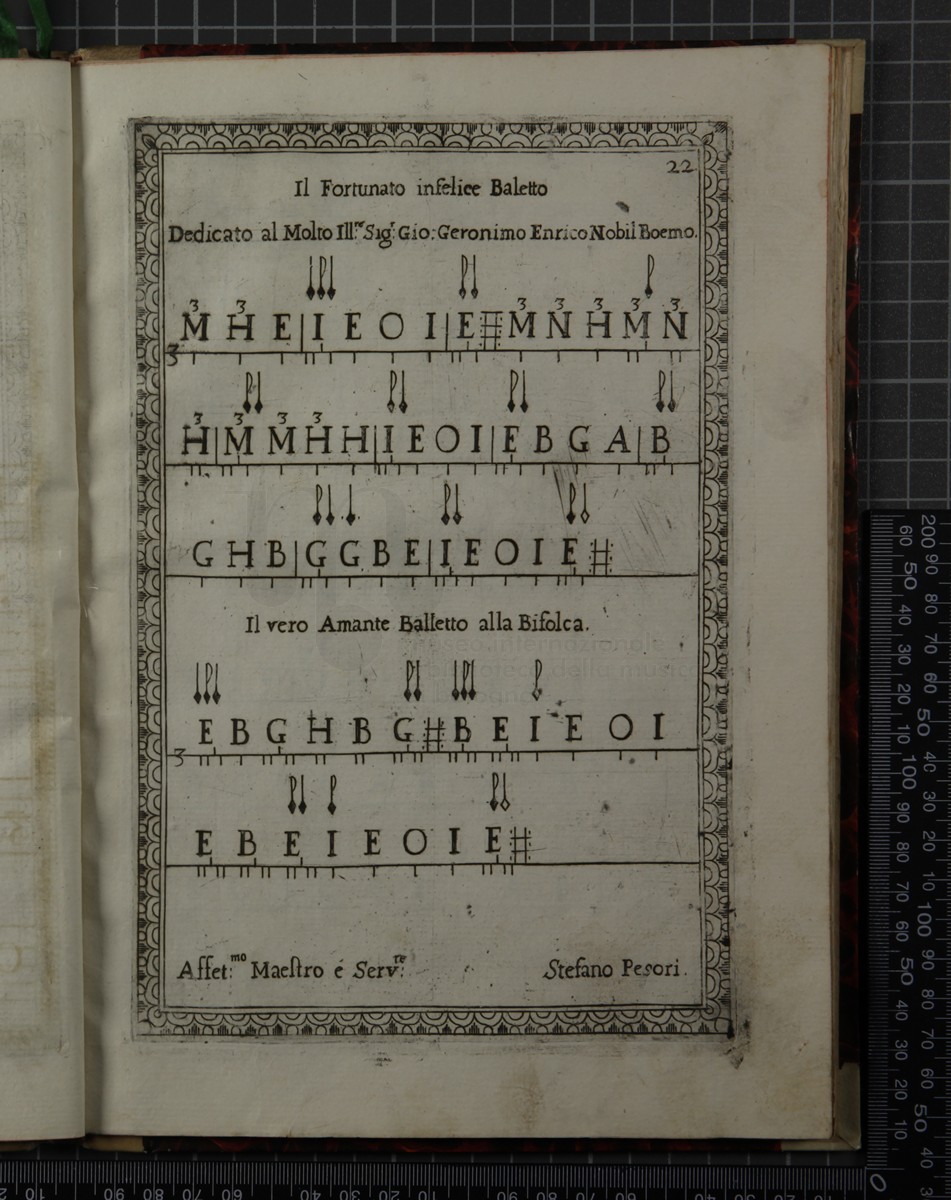 22
Il Fortunato infelice Baletto
Dedicato al Molto Ill.re Sig.r Gio: Geronimo Enrico Nobil Boemo.
3 3 3 3 3 3 3
M H E | I E O I | E M N H M N
3
3 3 3 3
H | M M H H | I E O I | E B G A | B
G H B | G G B E | I E O I E
Il vero Amante Balletto alla Bifolca.
E B G H B G B E I E O I
3
E B E I E O I E
Affet:mo Maestro é Serv:re Stefano Pesori.